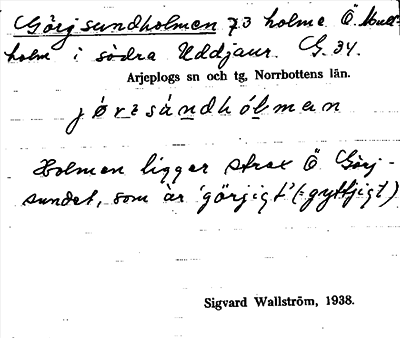 Görjsundholmen 73 holme Ö. Mull-
holm i södra Uddjaur. G. 34.
Arjeplogs sn och tg, Norrbottens län.
Holmen ligger strax Ö Görj-
sundet, som är 'görjigt' (= gyttjigt)
Sigvard Wallström, 1938.